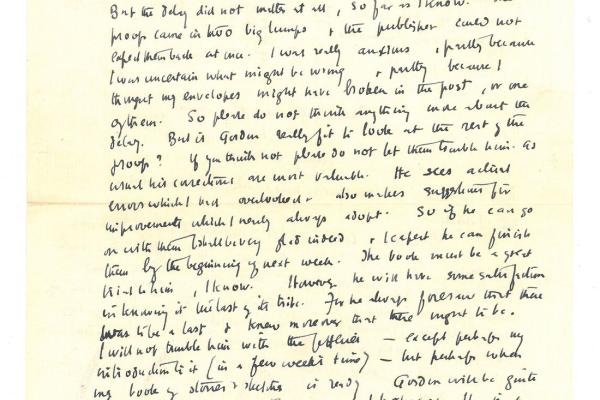 But the delay did not matter at all, so far as I know. The
proofs came in two big lumps & the publisher could not
expect them back at once. I was really anxious, partly because
I was uncertain what might be wrong & partly because I
thought my envelopes might have broken in the post, or one
of them. So please do not think anything more about the
delay. But is Gordon really fit to look at the rest of the
proofs? If you think not please do not let them trouble him. As
usual his corrections are most valuable. He sees actual
errors which I had overlooked & also makes suggestions for
improvements which I nearly always adopt. So if he can go
on with them I shall be very glad indeed & I expect he can finish
them by the beginning of next week. The book must be a great
trial to him, I know. However he will have some satisfaction
in knowing it the last of its tribe. For he always foresaw that there
was to be a last & knew moreover that there ought to be.
I will not trouble him with the — except perhaps my
introduction to it (in a few week's time) — but perhaps when
my book of stories & sketches is ready Gordon will be quite